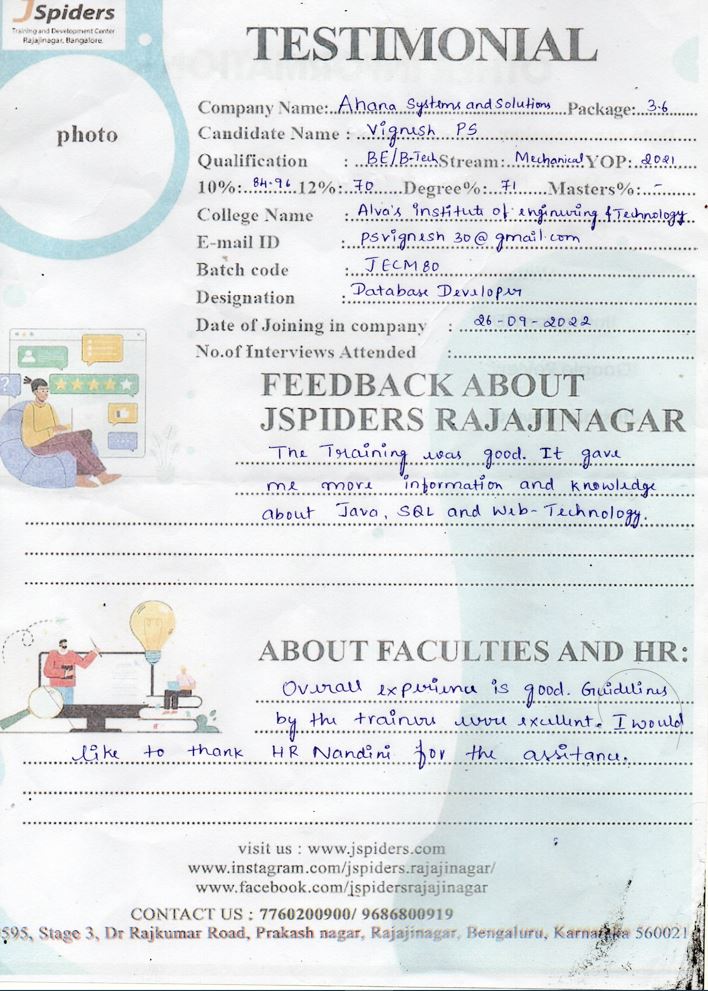 JSpiders
Training and Development Center
Rajajinagar, Bangalore.
TESTIMONIAL
photo
Company Name: Ahana Systems and Solutions Package: 3.6
Candidate Name : Vignesh PS
Qualification : BE/B-Tech Stream: Mechanical YOP: 2021
10%: 84.96 12%: 70 Degree%: 71 Masters%: -
College Name : Alva's institute of enginuring & Technology
E-mail ID : psvignesh30@gmail.com
Batch code : JECM80
Designation : Database Developer
Date of Joining in company : 26-09-2022
No.of Interviews Attended :
FEEDBACK ABOUT
JSPIDERS RAJAJINAGAR
The Training was good. It gave
me more information and knowledge
about Java, SQL and Web-Technology.
ABOUT FACULTIES AND HR:
Overall experience is good. Guidelines
by the trainers were excellent. I would
like to thank HR Nandini for the assitance.
visit us : www.jspiders.com
www.instagram.com/jspiders.rajajinagar/
www.facebook.com/jspidersrajajinagar
CONTACT US : 7760200900/ 9686800919
595, Stage 3, Dr Rajkumar Road, Prakash nagar, Rajajinagar, Bengaluru, Karnataka 560021